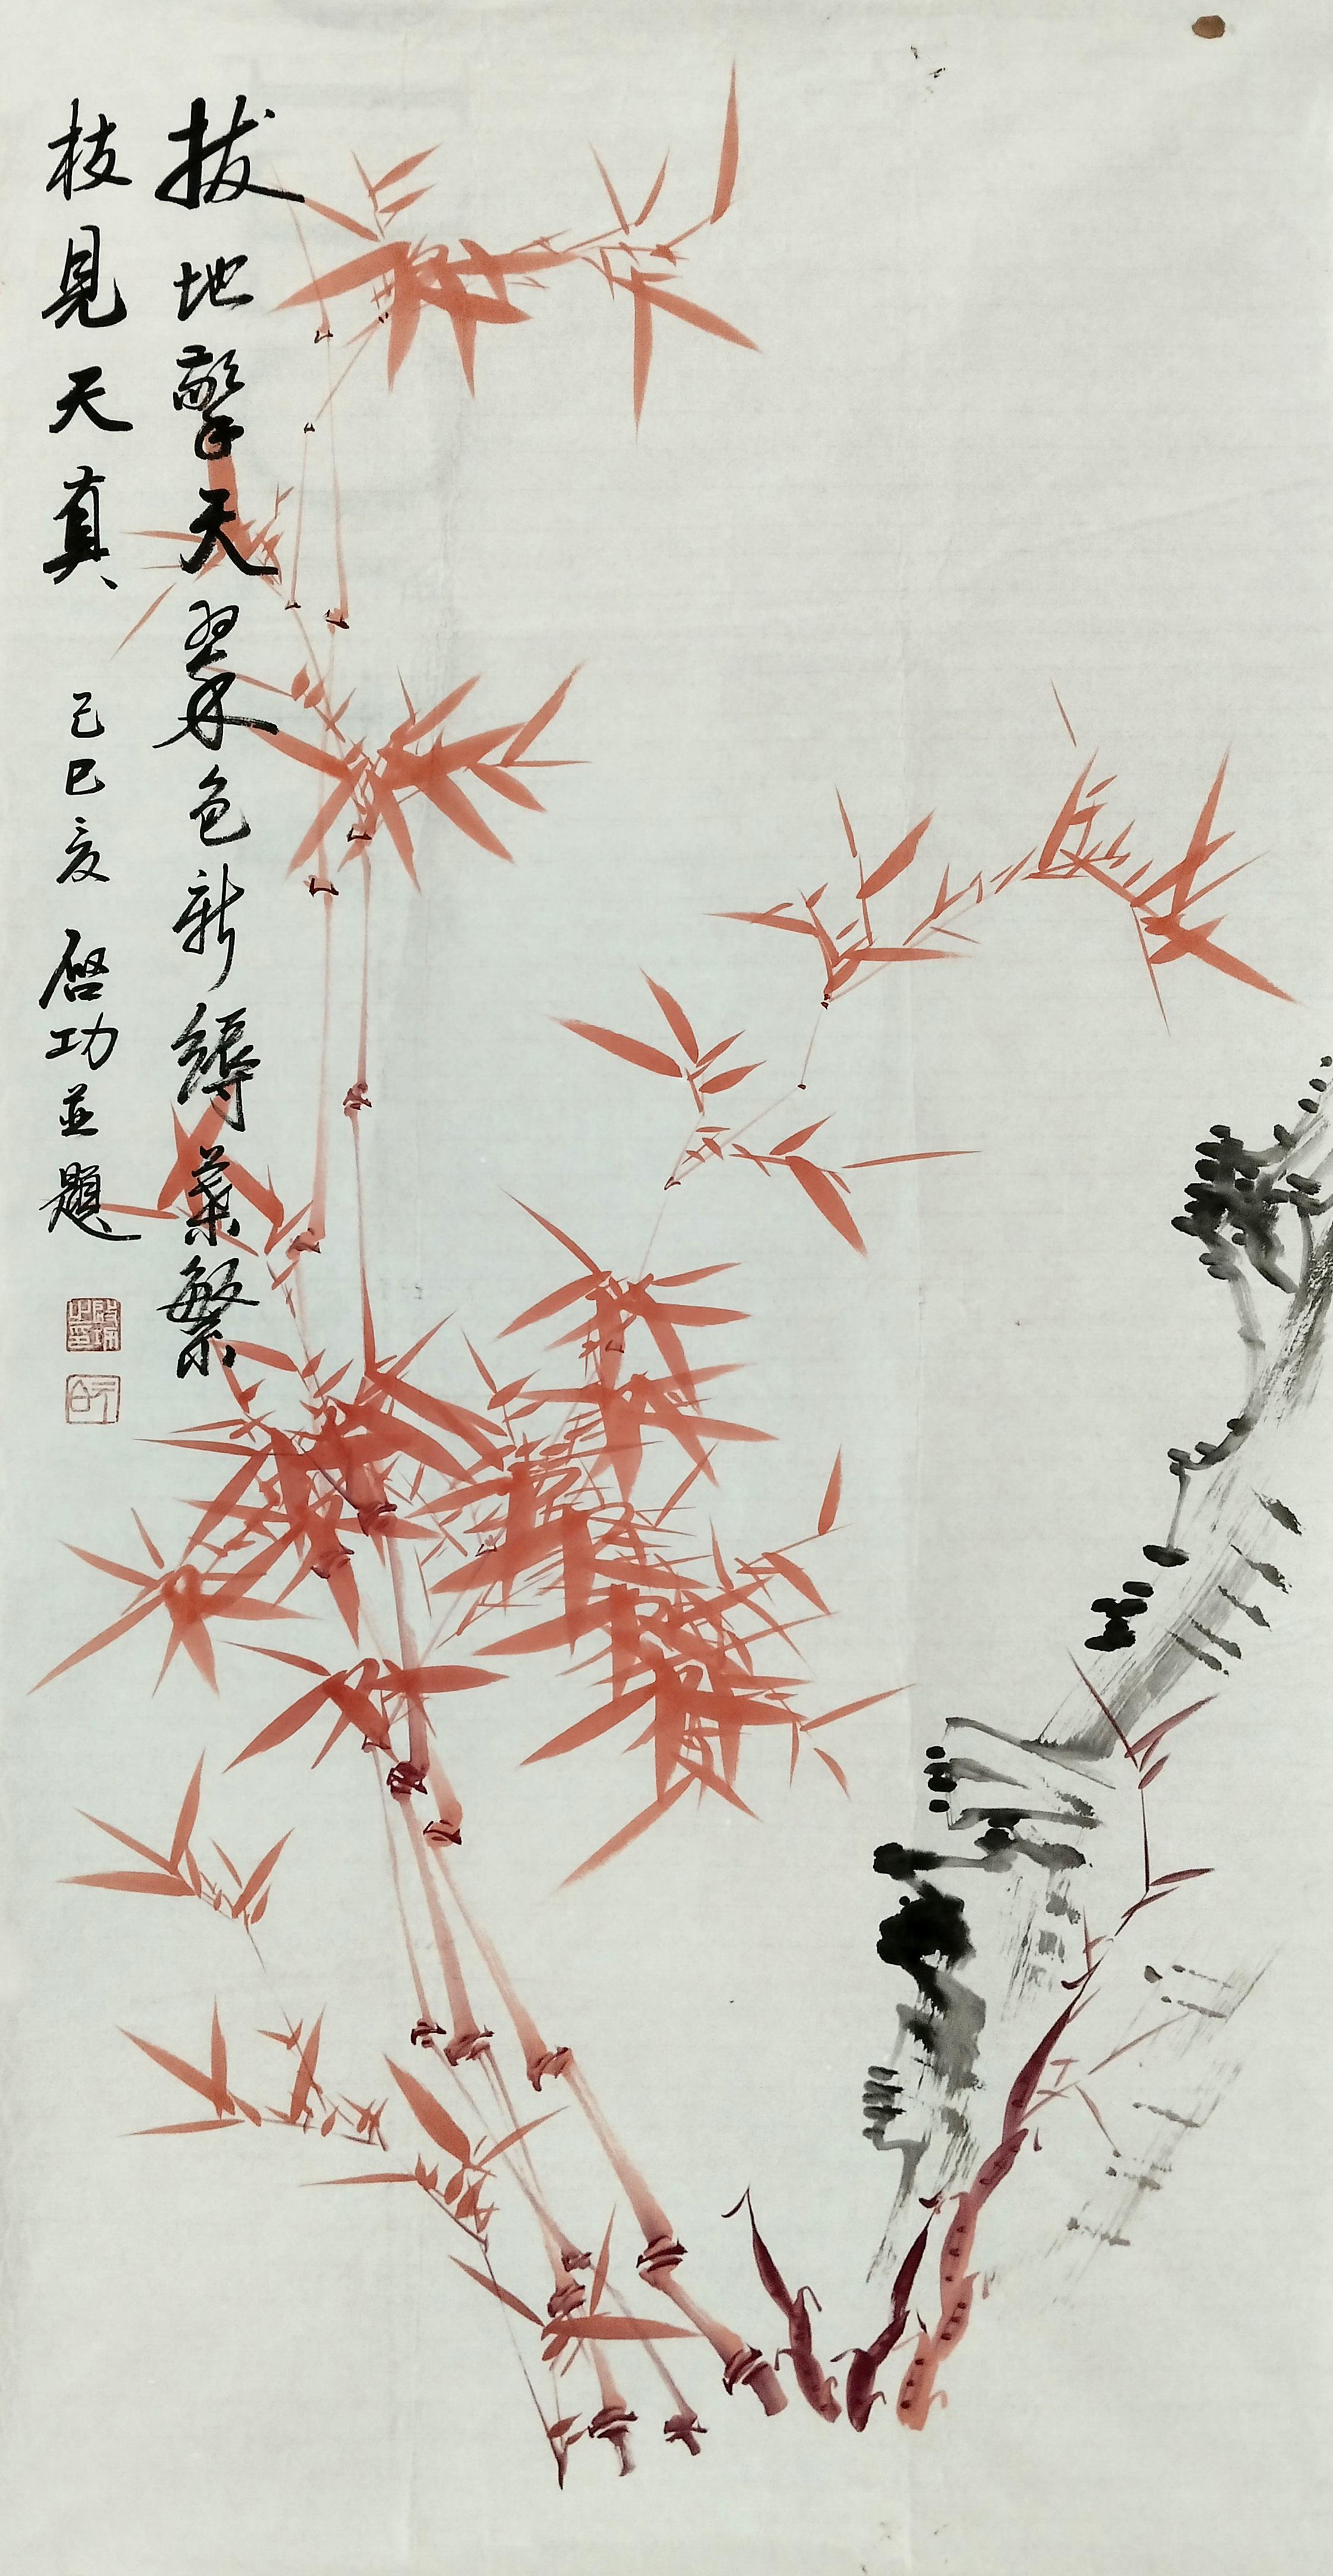 拔地擎天翠色新縟葉繁
枝見天真 己巳夏 启功並題